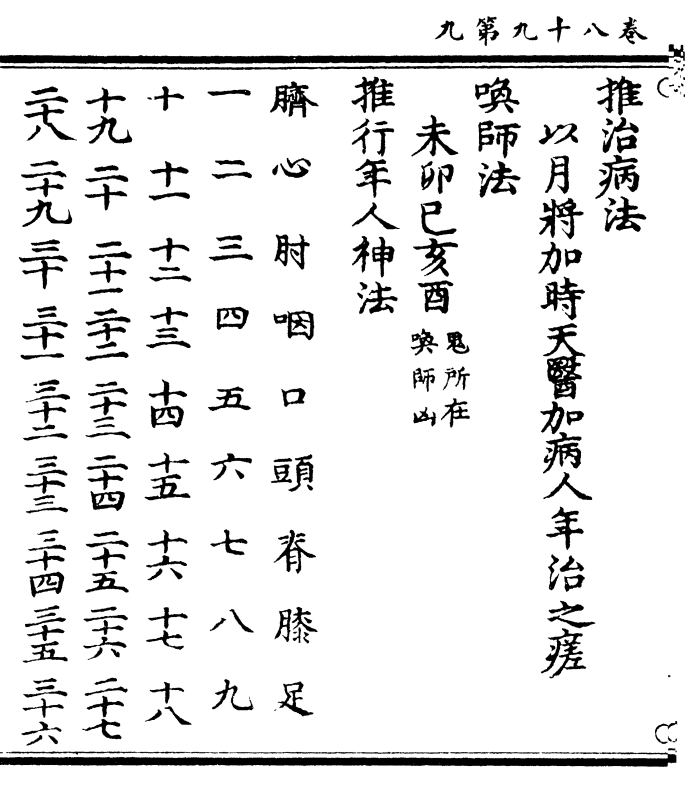 卷八十九第九
推治病法
以月將加時天醫加病人年治之瘥
喚師法
未卯巳亥酉 鬼所在
喚師凶
推行年人神法
臍心肘咽口頭脊膝足
一二三四五六七八九
十十一十二十三十四十五十六十七十八
十九二十二十一二十二二十三二十四二十五二十六二十七
二十八二十九三十三十一三十二三十三三十四三十五三十六